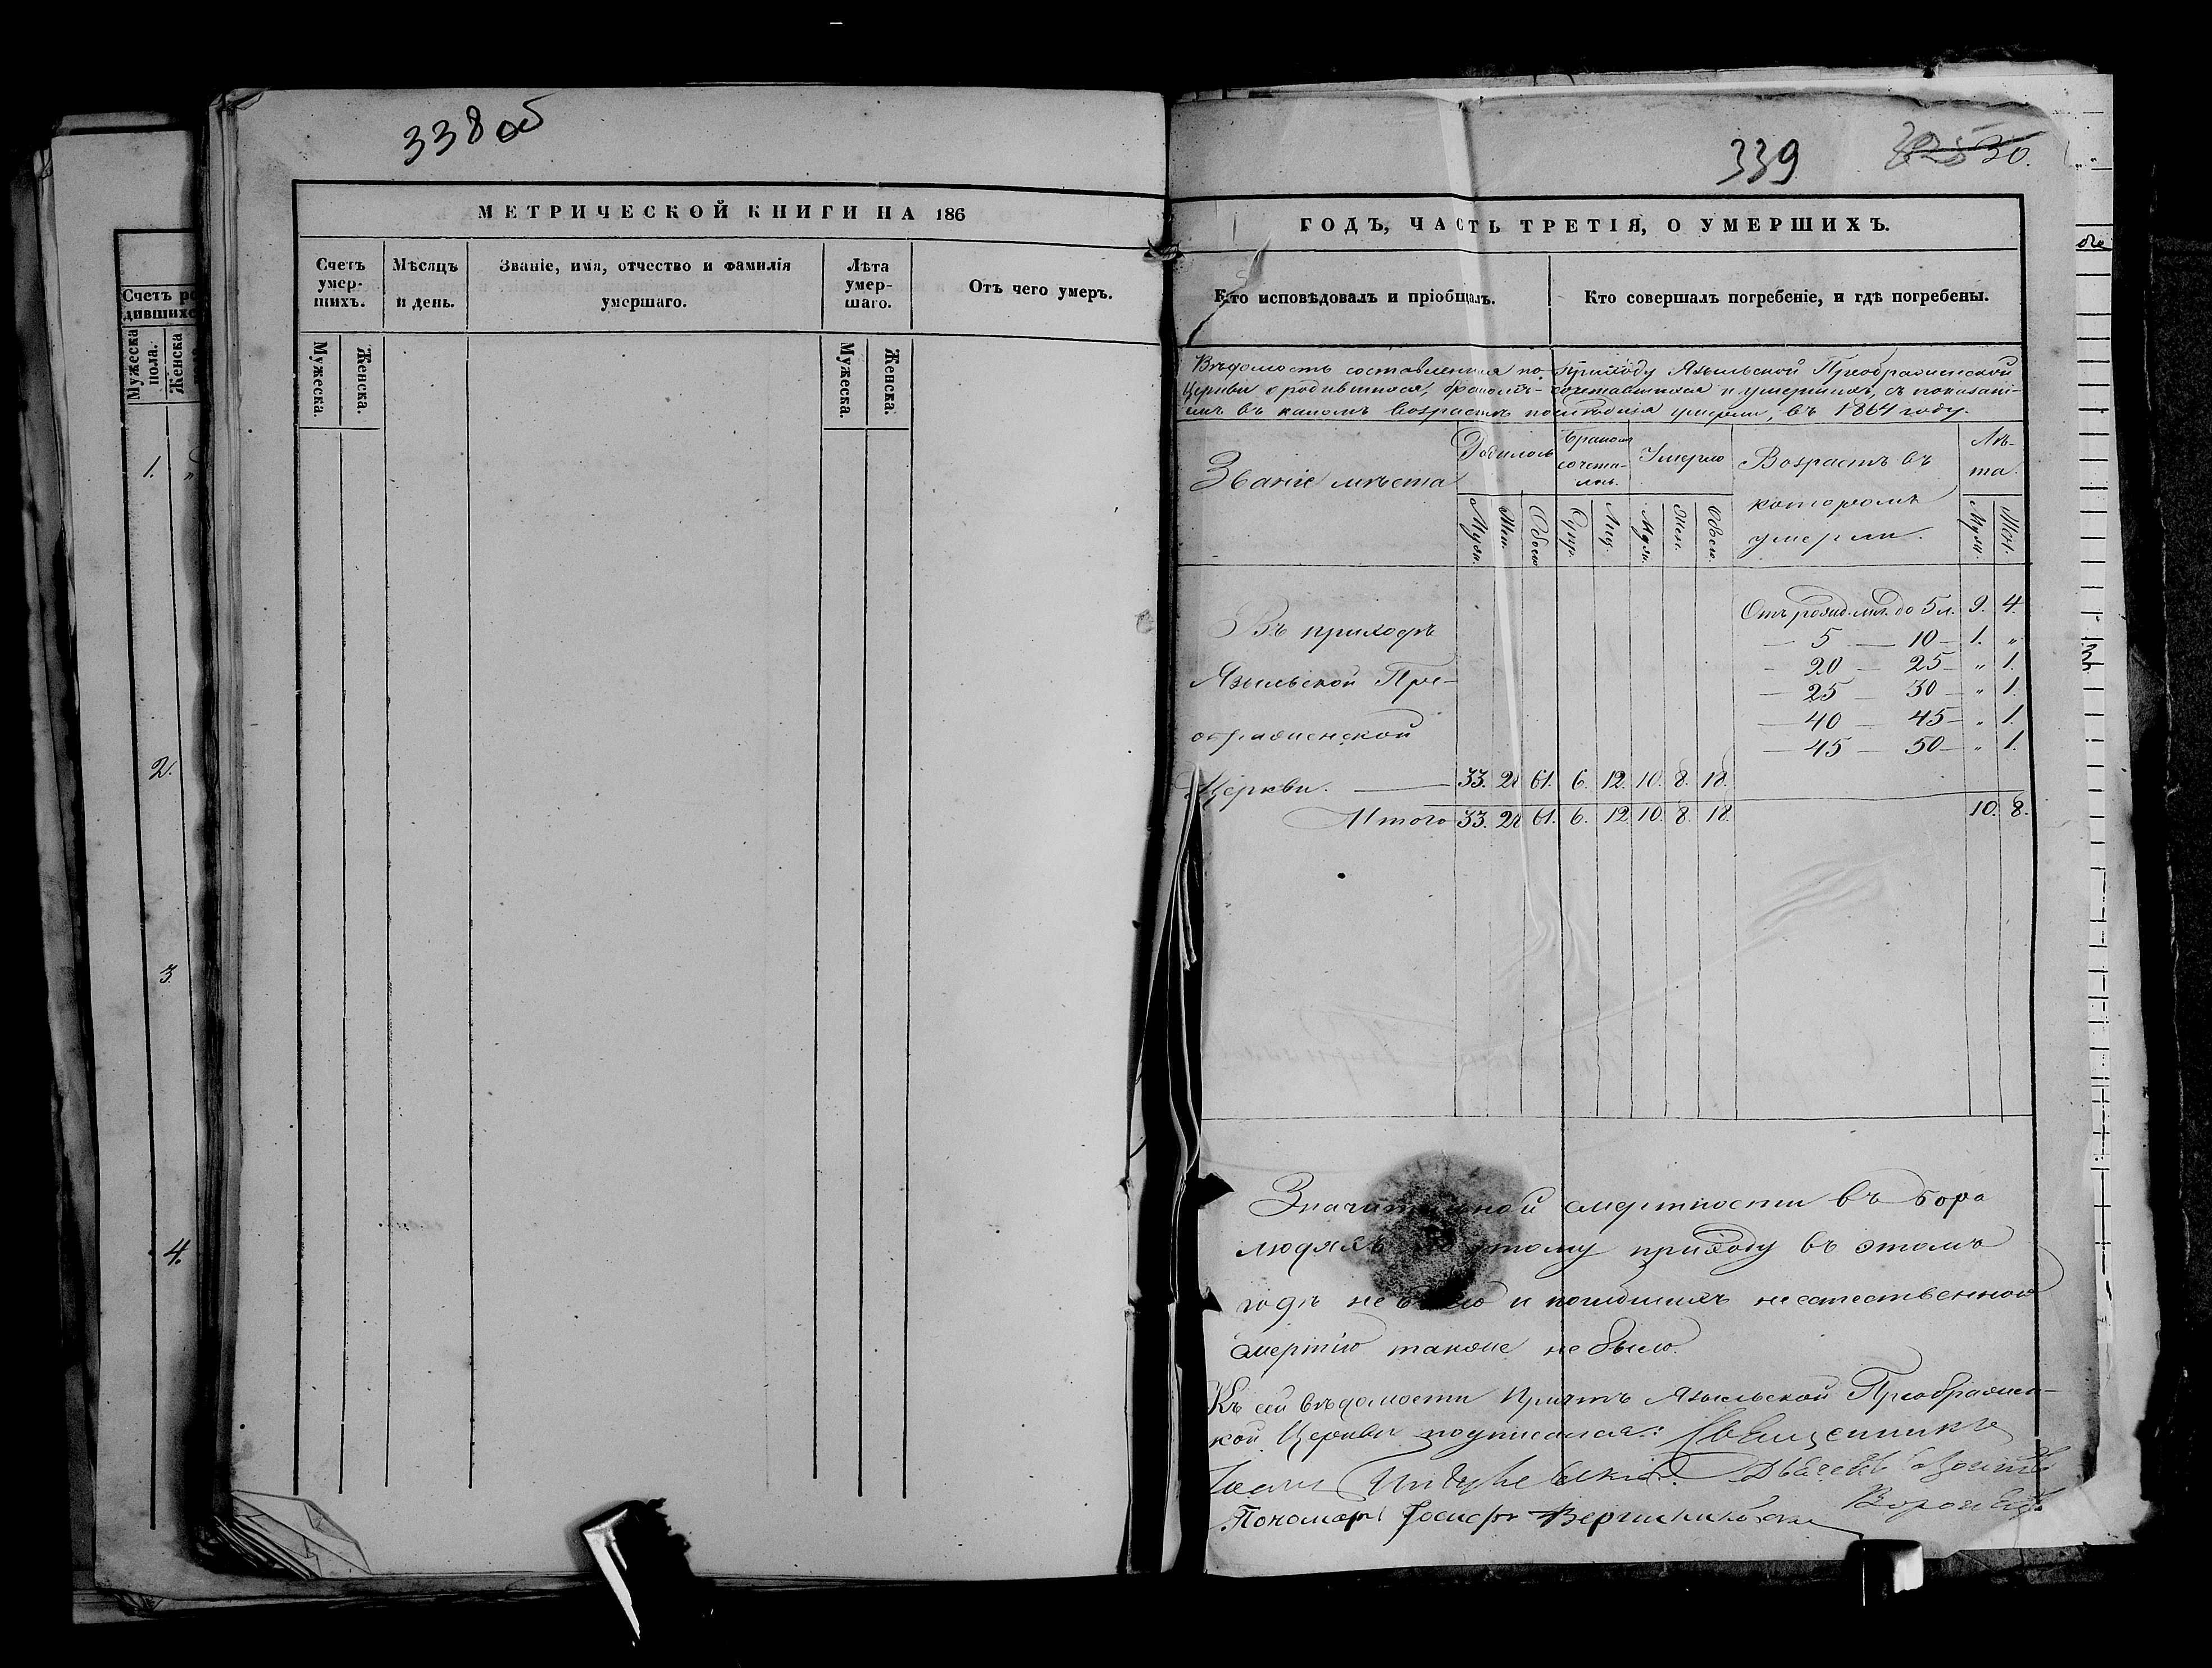 338 об
МЕТРИЧЕСКОЙ КНИГИ НА 186
Счетъ умер-шихъ.
Мѣсяцъ и день.
Званіе, имя, отчество и фамилія умершаго.
Лѣта умер-шаго.
Отъ чего умеръ.
Мужеска.
Женска.
Мужеска.
Женска.
Мужеска пола.
Женска
1.
2.
3.
4.
339
30.
ГОДЪ, ЧАСТЬ ТРЕТІЯ, О УМЕРШИХЪ.
Кто исповѣдовалъ и пріобщалъ.
Кто совершалъ погребеніе, и гдѣ погребены.
Вѣдомость составленная по Приходу Языльской Преображенской
Церкви о родившихся, бракомъ-сочетавшихся и умершихъ, съ показані-
емъ въ какомъ возрастѣ послѣдніе умерли, въ 1864 году.
Званіе мѣста
Родилось
Бракомъ сочета-лось.
Умерло
Возрастъ въ которомъ умерли.
Лѣ-та.
Муж.
Жен.
Обоего
Супр.
Лиц.
Муж.
Жен.
Обоего
Муж.
Жен.
Отъ рожд. мл. до 5 л. 9. 4.
— 5 — 10 — 1. „
— 20 — 25 — „ 1.
— 25 — 30 — „ 1.
— 40 — 45 — „ 1.
— 45 — 50 — „ 1.
Въ приходѣ
Языльской Пре-
ображенской
Церкви. — 33. 28 61. 6. 12. 10. 8. 18.
Итого 33. 28 61. 6. 12. 10. 8. 18. 10. 8.
Значительной смертности въ
людяхъ по этому приходу въ этомъ
годѣ не было и погибшихъ неестественною
смертію также не было.
Къ сей вѣдомости Причтъ Языльской Преображен-
кой Церкви подписался: Священникъ
Іоаннъ
Пономарь Іосифъ